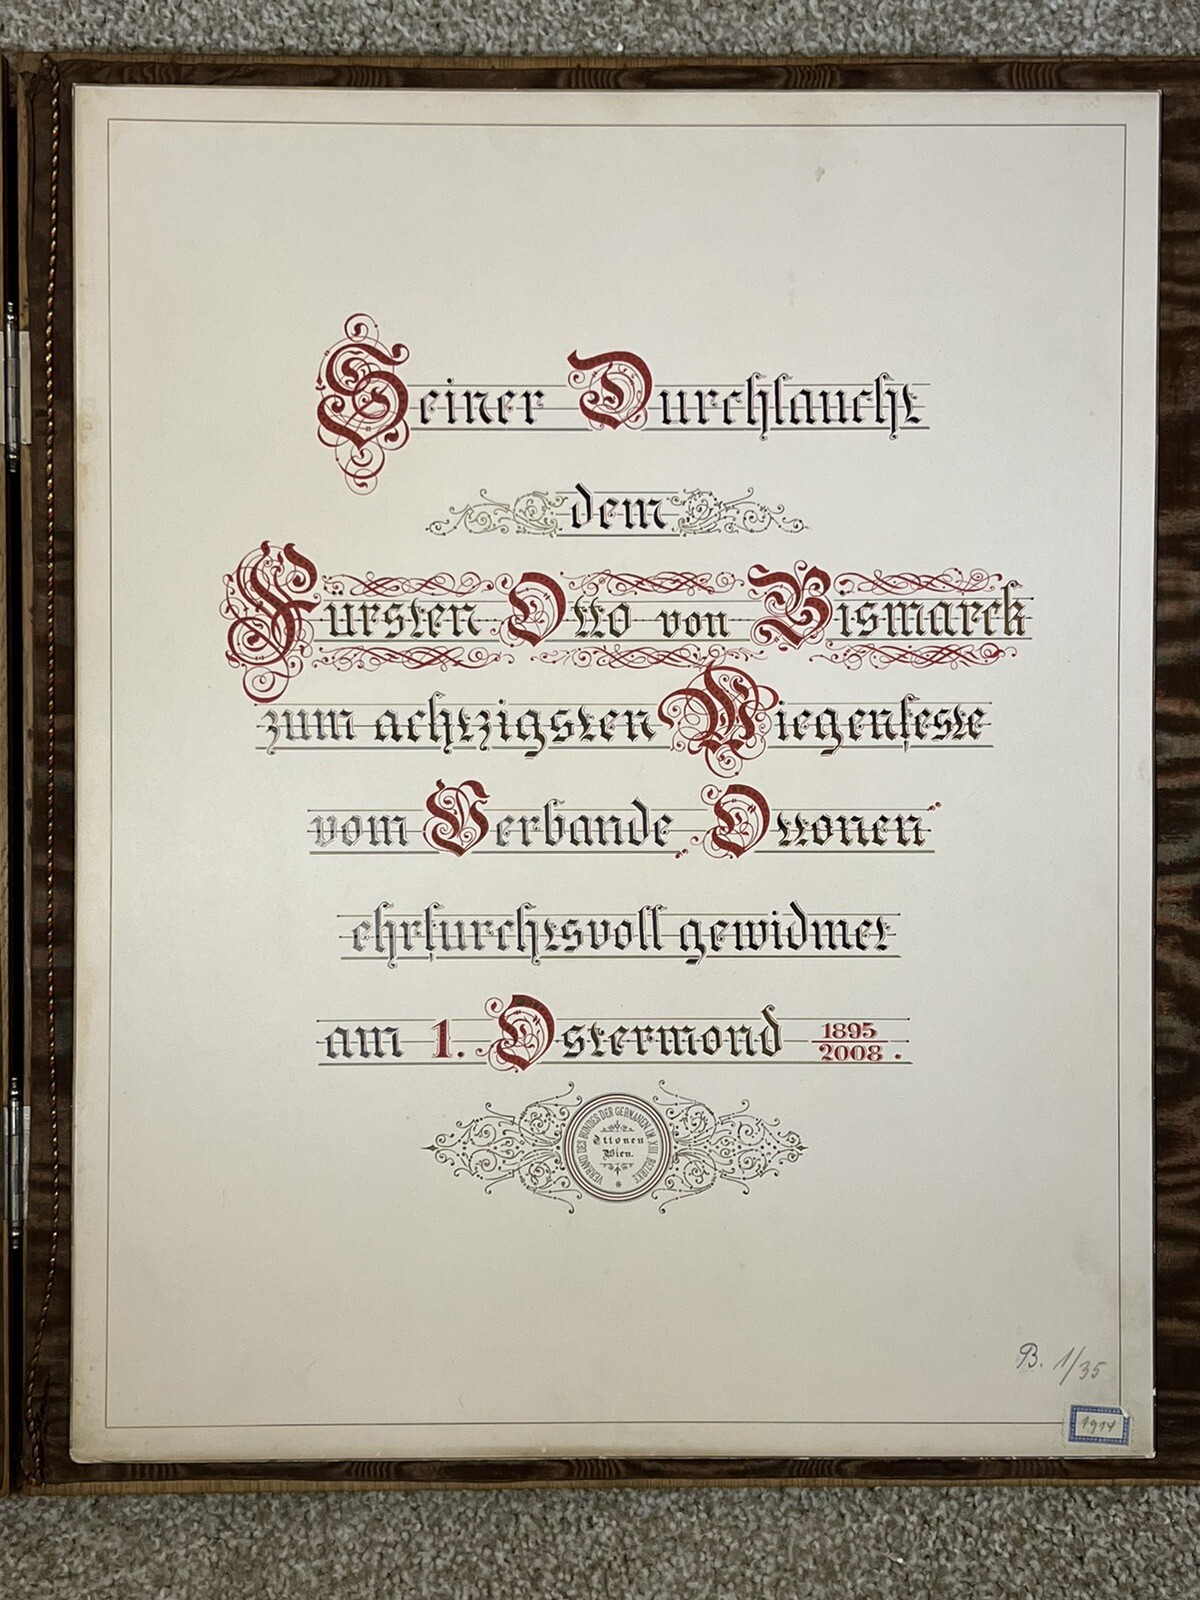 Seiner Durchlaucht
dem
Fürsten Otto von Bismarck
zum achtzigsten Wiegenfeste
vom Verbande „Ottonen“
ehrfurchtsvoll gewidmet
am 1. Ostermond 1895/2008.
VERBAND DES BUNDES DER GERMANEN IM XIII. BEZIRKE
Ottonen
Wien.
B. 1/35
1914